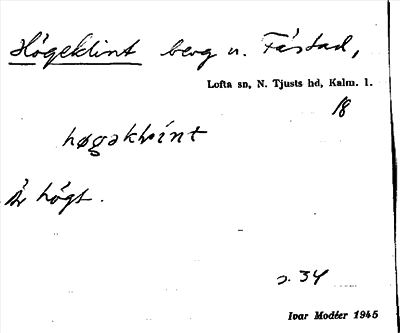 Högeklint berg n. Fåstad,
Lofta sn, N. Tjusts hd, Kalm. l.
18
høgəkhint
Är högt.
s. 34
Ivar Modéer 1945